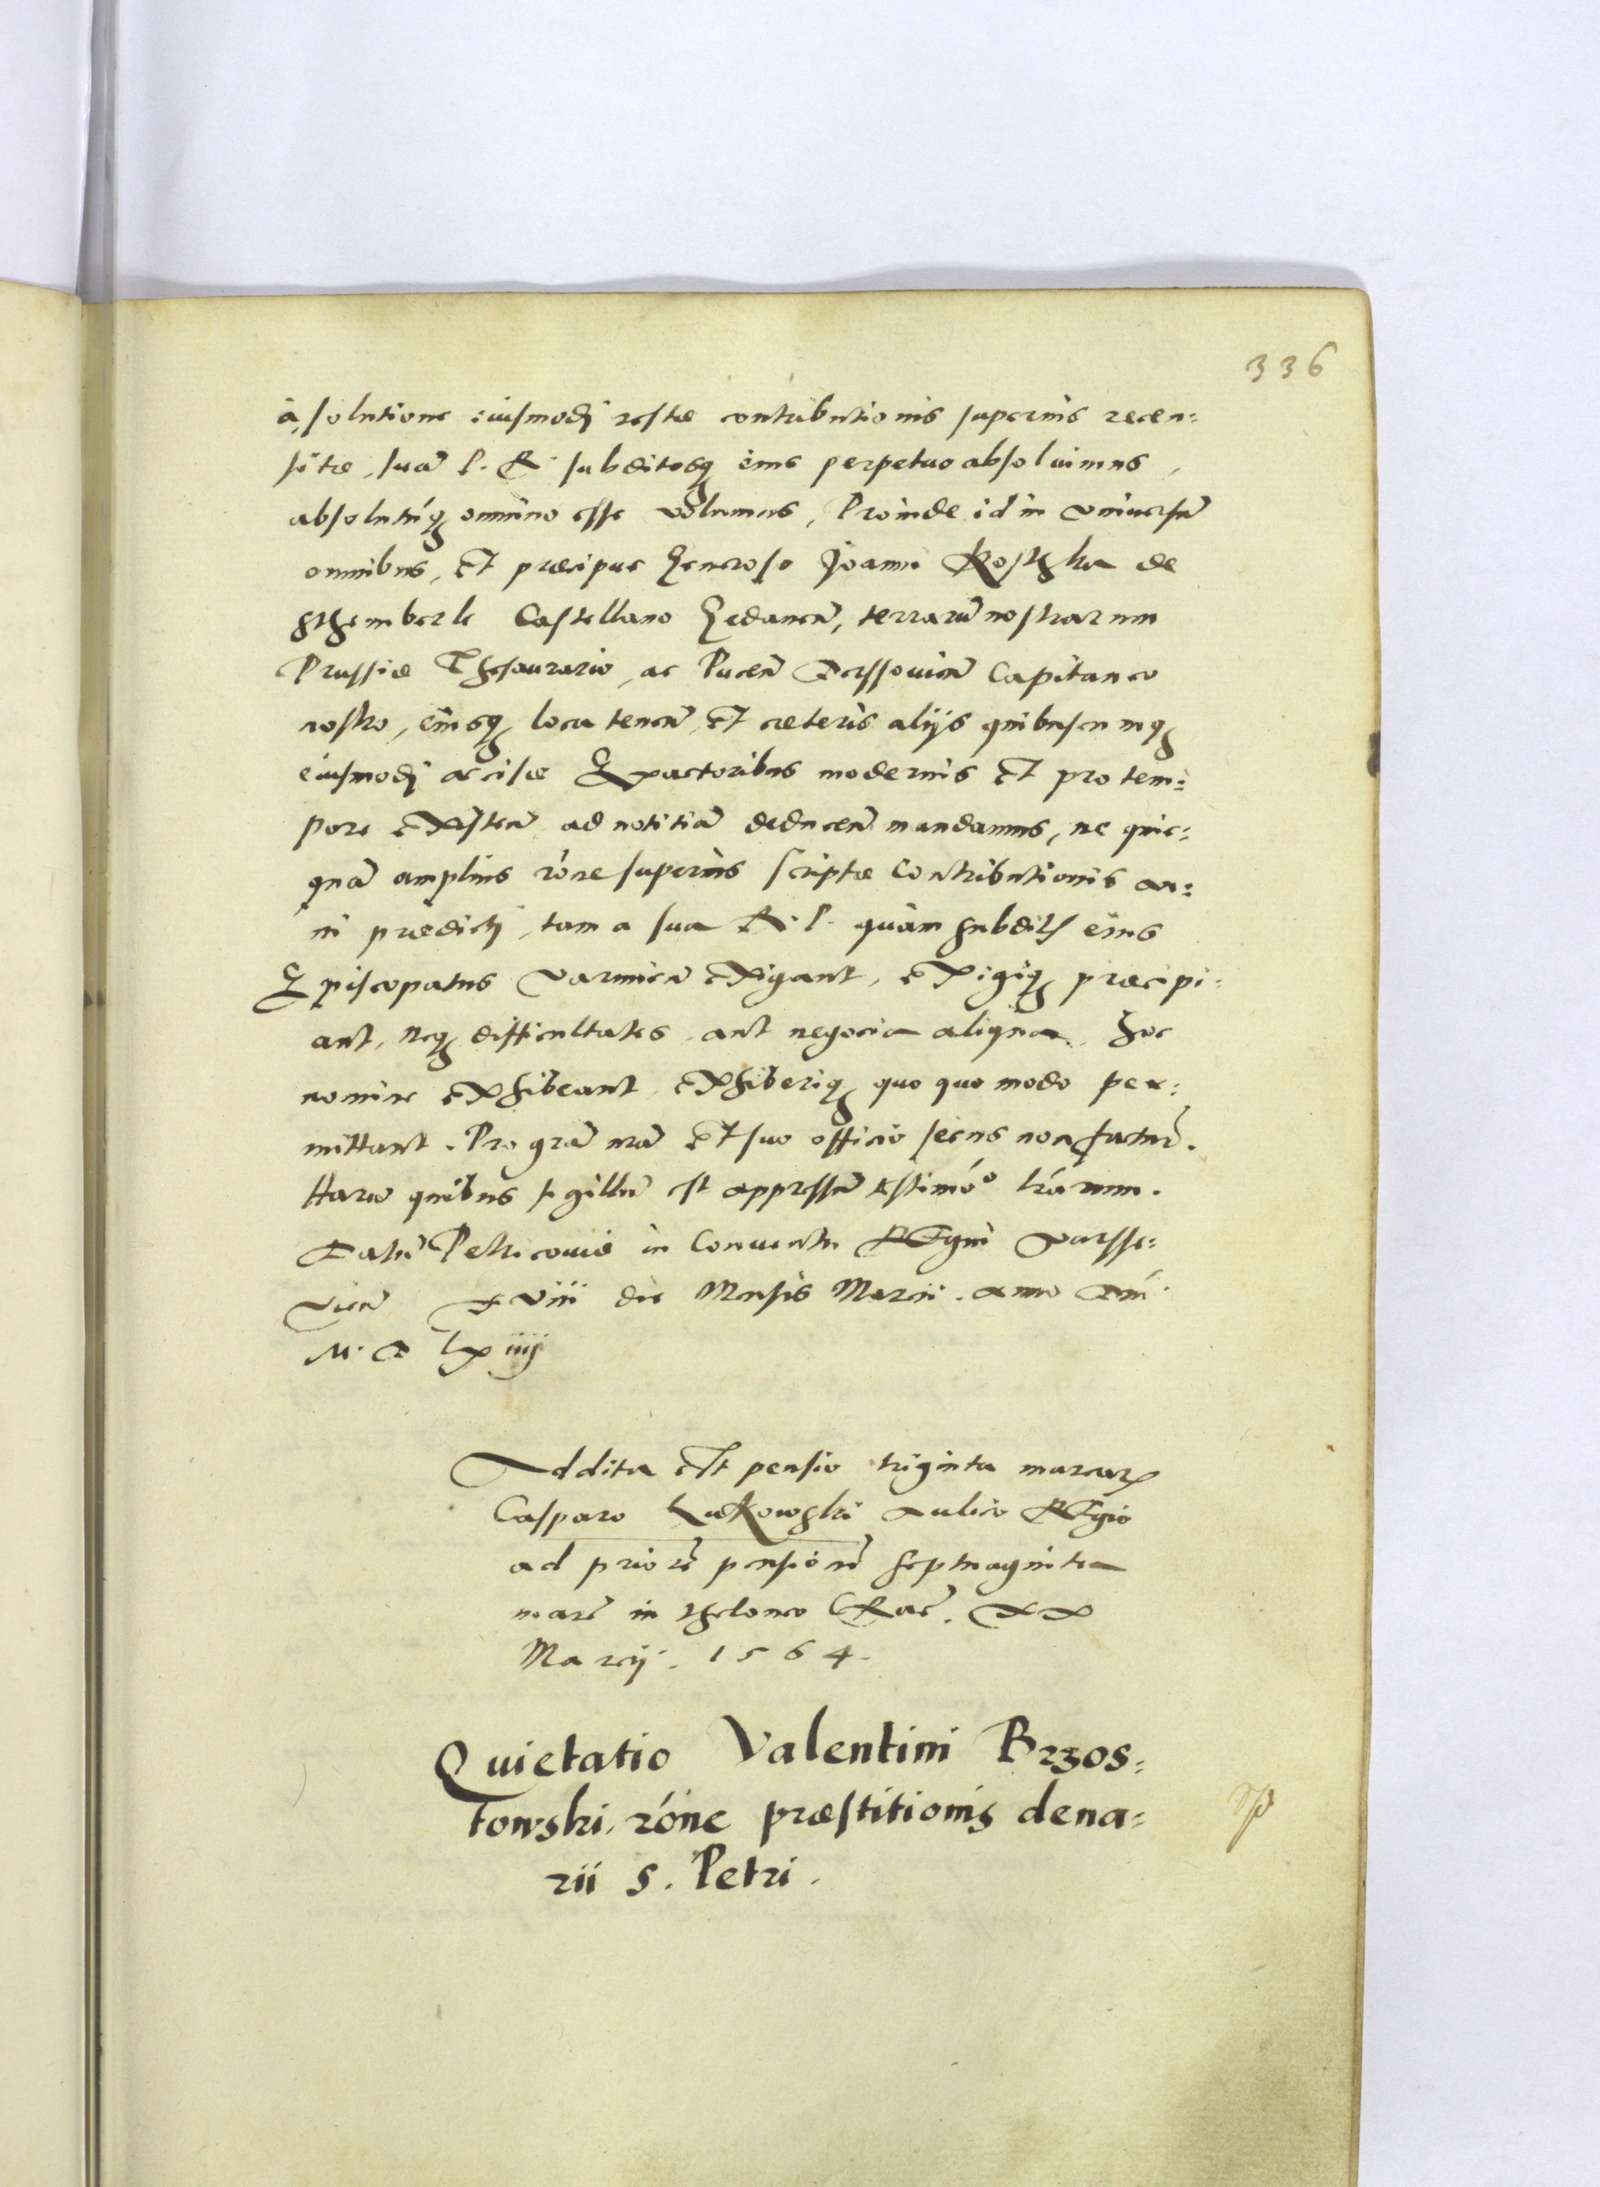 336
à solutione eiusmodi restæ contributionis superius recen:
sitæ, suã P. R. subditosq; eius perpetuo absoluimus,
absolutúq; omnino esse volumus, Proinde id in vniuersũ
omnibus, Et præcipue Generoso Joanni Kosthka de
Sthemberk Castellano Gedanen̄, terrarū nostrarum
Prussiæ Thesaurario, ac Pucen̄ Derssouien̄ Capitaneo
nostro, eiusq; locatenen̄, Et cæteris alijs quibuscumq;
eiusmodi accisæ Exactoribus modernis Et pro tem:
pore existen̄ ad notitiã deducen̄ mandamus, ne quic:
quã amplius rõne superius scriptæ Contributionis an:
ni prædicti, tam a sua R. P. quàm subditis eius
Episcopatus Varmien̄ exigant, exigiq; præcipi:
ant, neq; difficultates, aut negocia aliqua, hoc
nomine exhibeant, exhiberiq; quo quo modo per:
mittant. Pro grã nrã Et suo officio secus non fatur̄.
Harū quibus sigillū est appressũ testimo᷃º lrárum.
Datū Petricouiæ in Conuentu Regni Varsse:
uien̄ XViii die Mensis Marcii. anno Dni
M. D lxiiij
Addita Est pensio triginta marcar᷃
Casparo Lukowski Aulico Regio
ad priorē pensionē septuaginta
marc̄ in theloneo Crac̄. XX
Marcij. 1564.
Quietatio Valentini Brzos:
towski, róne præstitionis dena:
rii S. Petri.